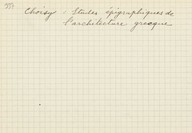 Choisy - Etudes épigraphiques de
l'architecture grecque